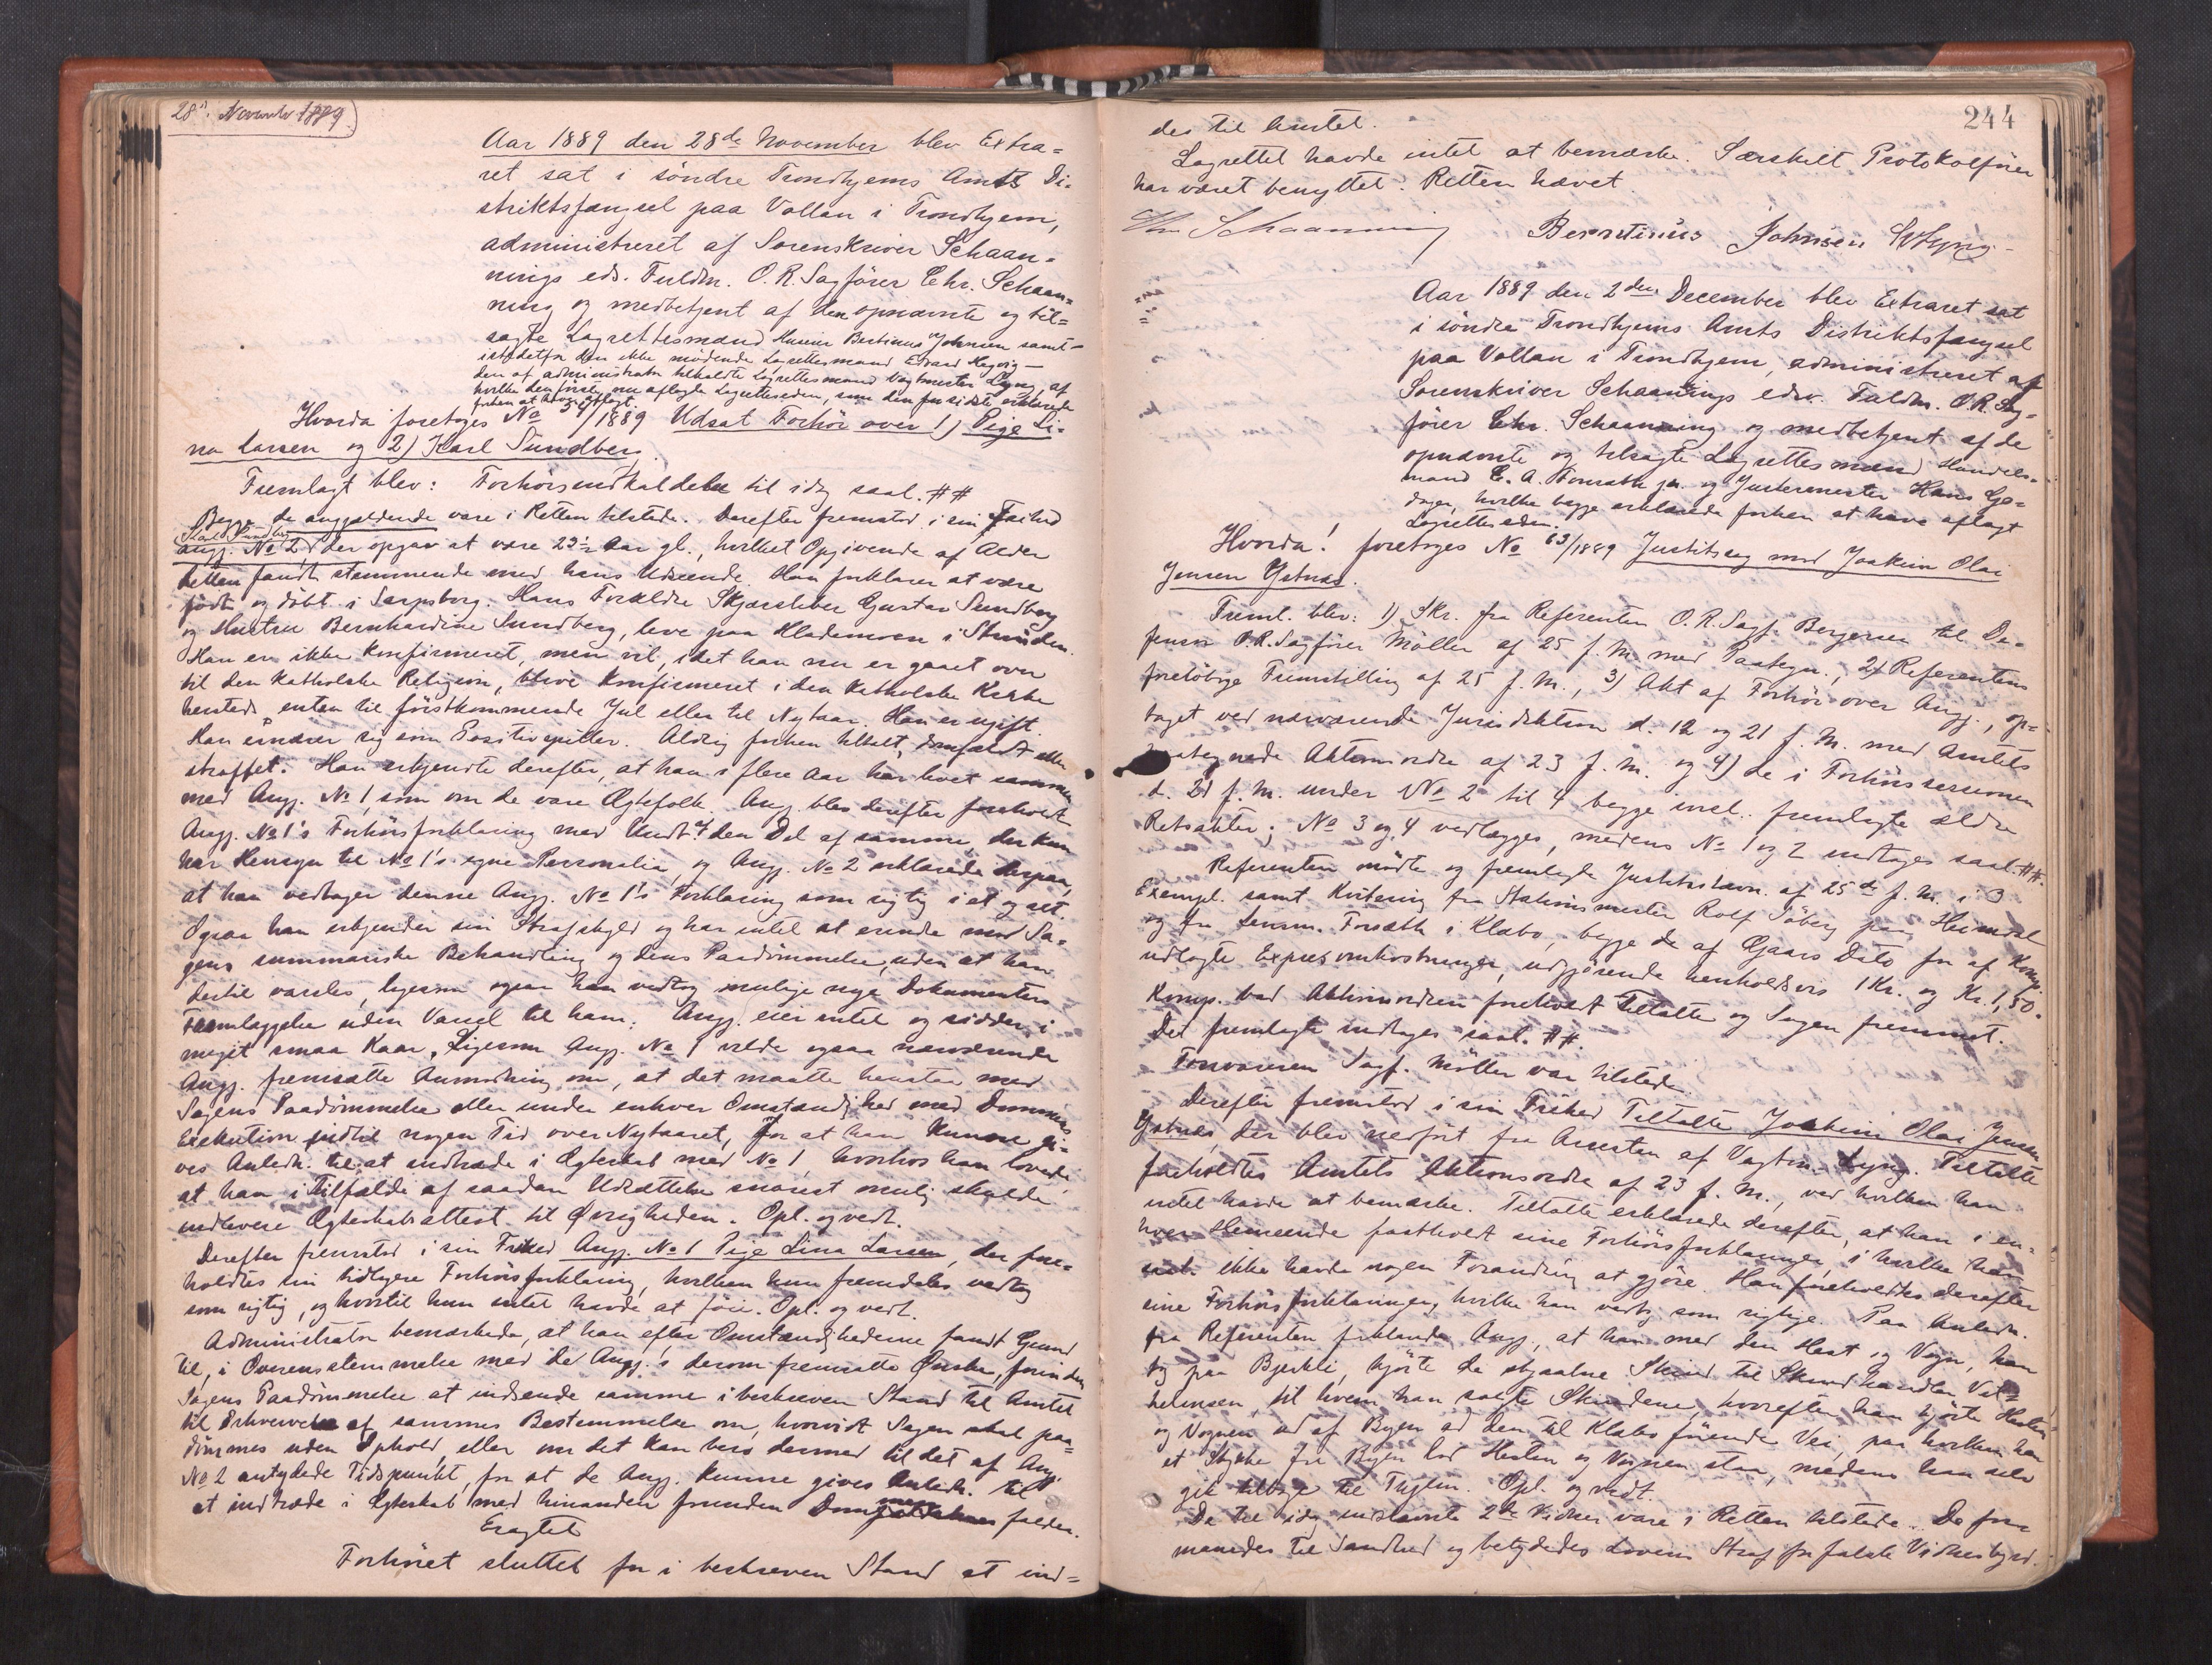 28' November 1889
Aar 1889 den 28de November blev Extra=
ret sat i söndre Trondhjems Amts Di-
striktsfængsel paa Vollan i Trondhjem,
administreret af Sorenskriver Schaan-
nings eds. Fuldm. O.R. Sagförer Chr. Schaan=
ning og medbetjent af de opnævnte og til=
sagte Lagrettesmænd Huseier Berntinus Johnsen samt -
istedetfor den ikke mödende Lagrettesmand Edvard Hagvig -
den af administrator tilkaldte Lagrettesmand Vagtmester Lyng, af
hvilke den första nu aflagde Lagretteseden, som den sidste erklærede
forhen at have aflagt.
Hvorda foretoges No 59/1889 Udsat Forhör over 1) Pige Li-
na Larsen og 2) Karl Sundberg.
Fremlagt blev: Forhörsindkaldelse til idag saal. ##
Begge de angjældende vare i Retten tilstede. Derefter fremstod i sin Frihed
Karl Sundberg
angj. No 2, der opgav at være 23½ Aar gl., hvilket Opgivende af Alder
Retten fandt stemmende med hans Udseende. Han forklarer at være
födt og döbt i Sarpsborg. Hans Forældre Skjærsliber Gustav Sundberg
og Hustru Bernhardine Sundberg, leve paa Hlademoen i Strinden.
Han er ikke konfirmeret, men vil, idet han nu er gaaet over
til den katholske Religion, blive konfirmeret i den katholske Kirke
hersteds enten til förstkommende Jul eller til Nytaar. Han er ugift.
Han ernærer sig som Positivspiller. Aldrig forhen tiltalt, domfældt eller
straffet. Han erkjendte derefter, at han i flere Aar har levet sammen
med Angj. No 1, som om de vare Ægtefolk. Angj. blev derefter foreholdt
Angj. No 1's Forhörsforklaring med Undt. af den Del af samme, der kun
har Hensyn til No 1's egne Personalia, og Angj. No 2 erklærede derpaa,
at han vedtager denne Angj. No 1's Forklaring som rigtig i et og alt.
Ogsaa han erkjender sin Strafskyld og har intet at erindre mod Sa-
gens summariske Behandling og dens Paadömmelse, uden at han
dertil varsles, ligesom ogsaa han vedtog mulige nye Dokumenters
Fremlæggelse uden Varsel til ham. Angj. eier intet og sidder i
meget smaa Kaar. Ligesom Angj. No 1 vilde ogsaa nærværende
Angj. fremsætte Anmodning om, at det maatte henstaa med
Sagens Paadömmelse eller under enhver Omstændighed med Dommens
Exekution indtil nogen Tid over Nytaaret, for at han kunne gi-
ves Anledn. til at indtræde i Ægteskab med No 1, hvorhos han lovede,
at han i Tilfælde af saadan Udsættelse snarest mulig skulde
indlevere Ægteskabsattest til Øvrigheden. Opl. og vedt.
Derefter fremstod i sin Frihed Angj. No 1 Pige Lina Larsen, der fore=
holdtes sin tidligere Forhörsforklaring, hvilken hun fremdeles vedtog
som rigtig, og hvortil hun intet havde at föie. Opl. og vedt.
Administrator bemærkede, at han efter Omstændighederne fandt Grund
til, i Overensstemmelse med de Angj.'s derom fremsatte Ønske, forinden
Sagens Paadömmelse at indsende samme i beskreven Stand til Amtet
til Erhvervelse af sammes Bestemmelse om, hvorvidt Sagen skal paa=
dömmes uden Ophold, eller om det kan bero dermed til det af Angj.
No 2 antydede Tidspunkt, for at de Angj. kunne gives Anledn. til
at indtræde i Ægteskab med hinanden forinden Dommen falder.
Eragtet
Forhöret sluttet for i beskreven Stand at ind=
244
des til Amtet.
Lagrettet havde intet at bemærke. Særskilt Protokolförer
har været benyttet. Retten hævet.
Chr Schaanning Berntinus Johnsen Lyng
Aar 1889 den 2den December blev Extraret sat
i söndre Trondhjems Amts Distriktsfængsel
paa Vollan i Trondhjem, administreret af
Sorenskriver Schaannings edsv. Fuldm. O.R. Sag=
förer Chr. Schaanning og medbetjent af de
opnævnte og tilsagte Lagrettesmænd Handels-
mand C. A. Fonrath jr. og Justermester Hans Ge-
, hvilke begge erklærede forhen at have aflagt
Lagretteseden.
Hvorda! foretoges No 63/1889 Justitssag mod Joakim Olai
Jensen Ystnæs.
Freml. blev: 1) Skr. fra Referenten O.R. Sagf. Bergersen til De-
fensor O.R. Sagförer Möller af 25 f. M. med Paategn., 2) Referentens
foreløbige Fremstilling af 25 f. M., 3) Akt af Forhör over Angj., op-
taget ved nærværende Jurisdiktion d. 12 og 21 f. M. med Amtets
paategnede Aktionsordre af 23 f. M. og 4) de i Forhörssessionen
d. 21 f. M. under No 2 til 4 begge incl. fremlagte ældre
Retsakter; No 3 og 4 vedlægges, medens No 1 og 2 indtages saal. ##.
Referenten mödte og fremlagde Justitsstævn. af 25de f. M. i 3
Exempl. samt Kvitering fra Stationsmester Rolf Söberg paa Heimdal
og fra Lensm. Forsæth i Klæbo, begge de af Gaars Dato for af Komp.
udlagte Expresomkostninger, udgjörende henholdsvis 1 Kr. og Kr. 1,50.
Komp. bad Aktionsordren foreholdt Tiltalte og Sagen fremmet.
Det fremlagte indtages saal. ##.
Forsvareren Sagf. Möller var tilstede.
Derefter fremstod i sin Frihed Tiltalte Joakim Olai Jensen
Ystnæs, der blev nedfört fra Arresten af Vagtm. Lyng. Tiltalte
foreholdtes Amtets Aktionsordre af 23 f. M., ved hvilken han
intet havde at bemærke. Tiltalte erklærede derefter, at han i en-
hver Henseende fastholdt sine Forhörsforklaringer, i hvilke han
ikke havde nogen Forandring at gjöre. Han foreholdtes derefter
sine Forhörsforklaringer, hvilke han vedtog som rigtige. Paa Anledn.
fra Referenten forklarede Angj., at han med den Hest og Vogn, han
tog paa Bjerkli, kjörte de stjaalne Skind til Skindhandler Vil=
helmsen, til hvem han solgte Skindene, hvorefter han kjörte Hesten
og Vognen ud af Byen ad den til Klæbo förende Vei, paa hvilken han
et Stykke fra Byen lod Hesten og Vognen staa, medens han selv
gik tilbage til Byen. Opl. og vedt.
De til idag indstævnte 2de Vidner vare i Retten tilstede. De for-
manedes til Sandhed og betydedes Lovens Straf for falsk Vidnesbyrd.